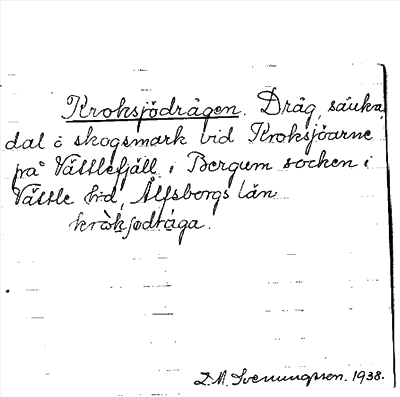 Kroksjödrågen. Dråg, sänka,
dal i skogsmark vid Kroksjöarne
på Vättlefjäll i Bergum socken i
Vättle hd, Älfsborgs län
kròksjødråga.
Svenungsson. 1938.